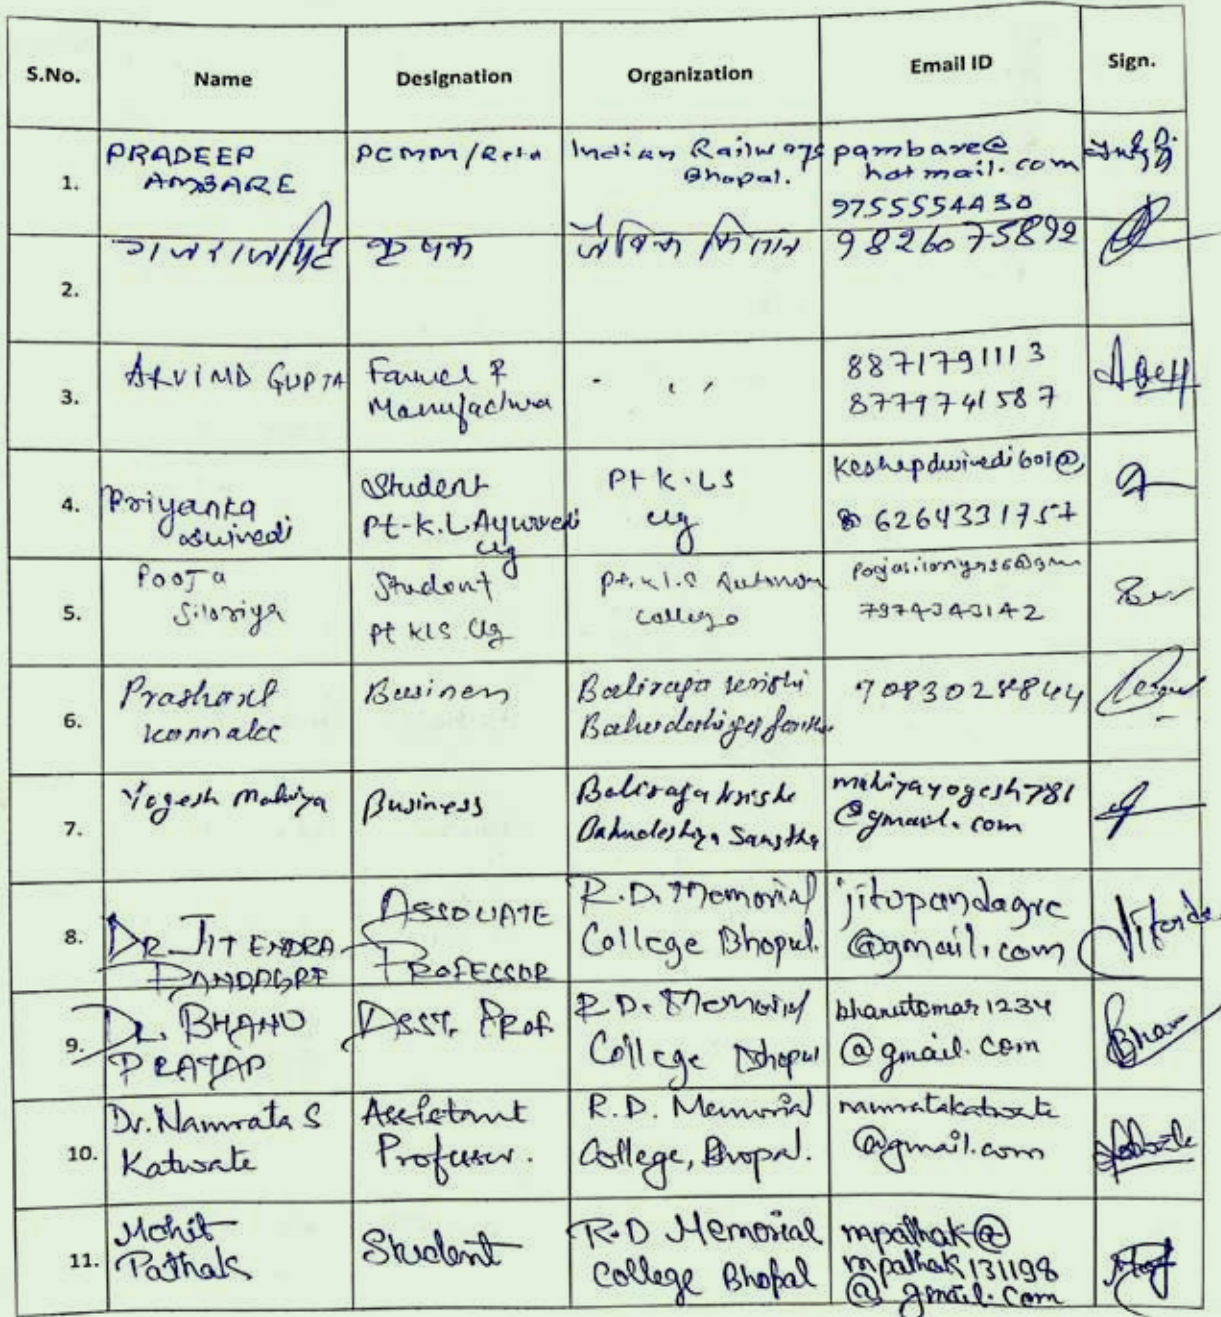 S.No. Name Designation Organization Email ID Sign.
1. PRADEEP AMBARE PCMM/Retd Indian Railways Bhopal. pambare@hotmail.com 9755554430
2. गजराजसिंह कृषक जैविक किसान 9826075892
3. ARVIND GUPTA Farmer & Manufactura 8871791113 8779741587
4. Priyanka Dwivedi Student Pt-K.L.Ayurvedi clg Pt K.LS clg 6264331757
5. Pooja Siloriya Student Pt KLS Clg college 7974343142
6. Prashant Business 7083028844
7. Yogesh Mahiya Business Baliraja krishi Bahudeshiya Sanstha mahiyayogesh781@gmail.com
8. DR. JITENDRA PANDAGRE ASSOCIATE PROFESSOR R.D. Memorial College Bhopal. jitupandagre@gmail.com
9. Dr. BHANU PRATAP ASST. PROF. R.D. Memorial College Bhopal bhanutomar1234@gmail.com
10. Dr. Namrata S Katwate Assistant Professor. R.D. Memorial College, Bhopal. namratakatwate@gmail.com
11. Mohit Pathak Student R.D Memorial College Bhopal mpathak@ mpathak131198@gmail.com